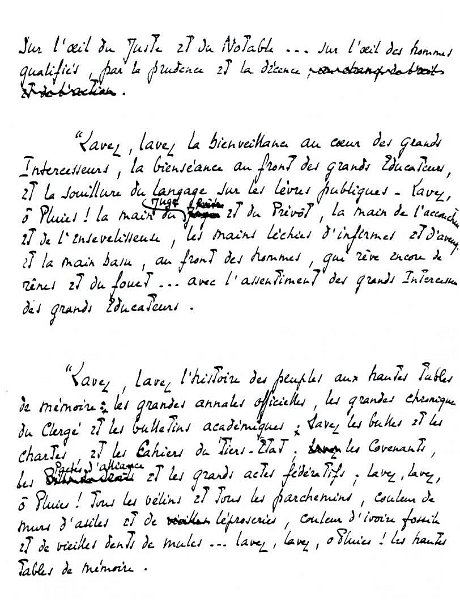 Sur l'œil du Juste et du Notable ... sur l'œil des hommes
qualifiés, par la prudence et la décence,
et de l'action.
"Lavez, lavez la bienveillance au cœur des grands
Intercesseurs, la bienséance au front des grands Éducateurs,
et la souillure du langage sur les lèvres publiques - Lavez,
ô Pluies! la main du Juge et du Prévôt, la main de l'accouch
et de l'ensevelisseuse, les mains léchées d'infirmes et d'aveug
et la main basse, au front des hommes, qui rêve encore de
rênes et du fouet ... avec l'assentiment des grands Intercesse
des grands Éducateurs.
"Lavez, lavez l'histoire des peuples aux hautes tables
de mémoire: les grandes annales officielles, les grandes chronique
du Clergé et les bulletins académiques; Lavez les bulles et les
chartes, et les Cahiers du Tiers-État; les Covenants,
les Pactes d'alliance et les grands actes fédératifs; lavez, lavez,
ô Pluies! tous les vélins et tous les parchemins, couleur de
murs d'asiles et de léproseries, couleur d'ivoire fossile
et de vieilles dents de mules ... Lavez, lavez, ô Pluies! les hautes
tables de mémoire.